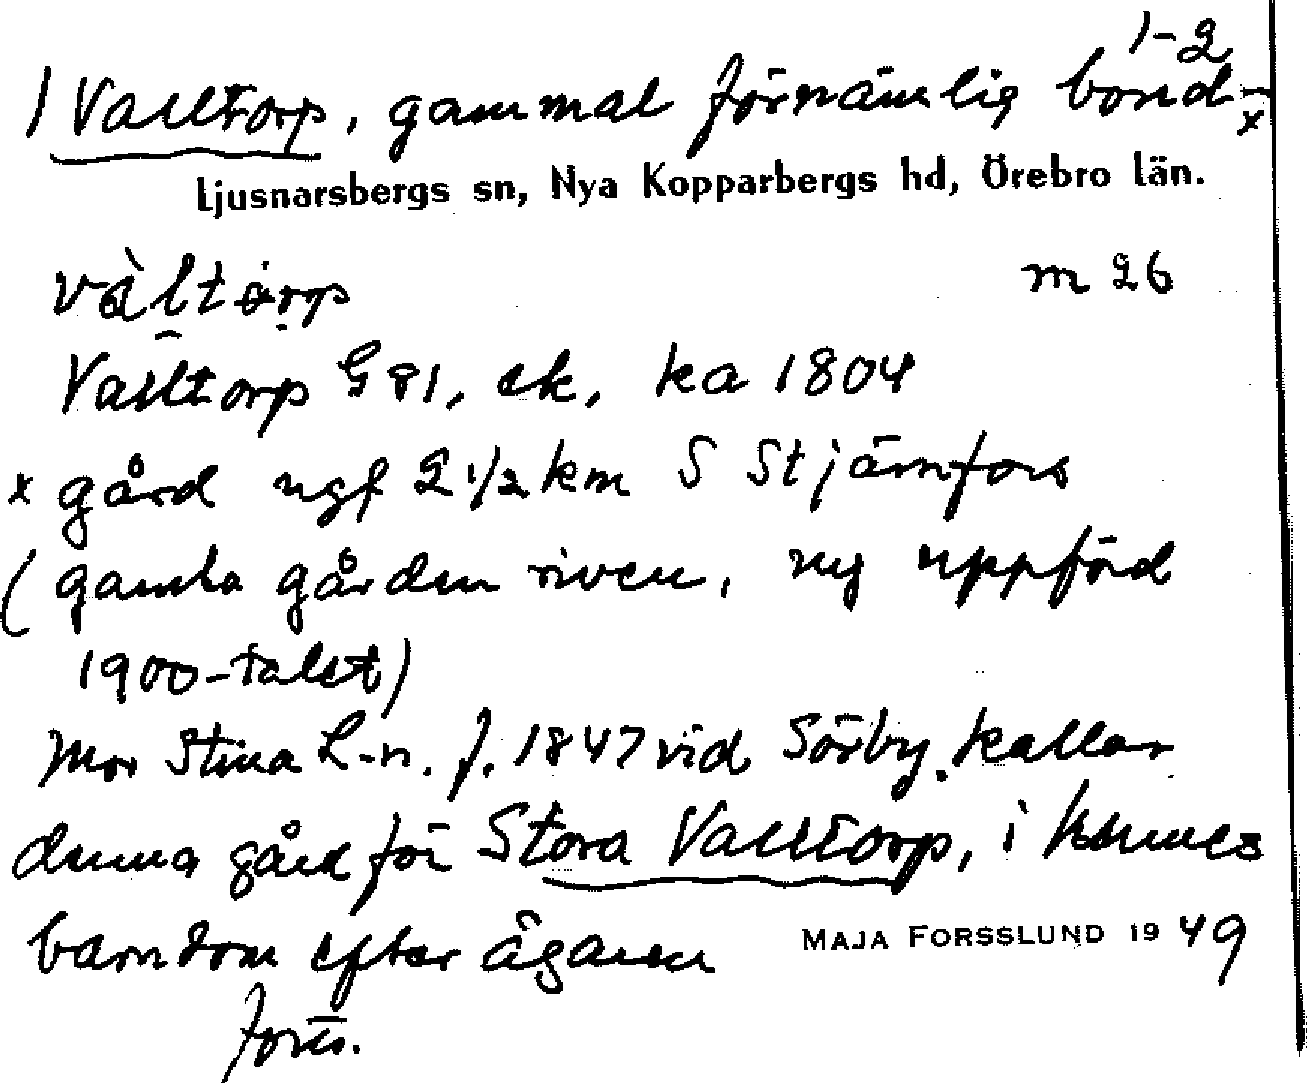 1-2
1 Valltorp, gammal förnämlig bond-x
Ljusnarsbergs sn, Nya Kopparbergs hd, Örebro län.
vàltórp m 26
Valltorp G 81, ek, ka 1804
x gård ngf 2 1/2 km S Stjärnfors
(gamla gården riven, ny uppförd
1900-talet)
Mor Stina L-n. f. 1847 vid Sörby, kallar
denna gård för Stora Valltorp, i hennes
barndom efter ägaren
MAJA FORSSLUND 1949
Forts.